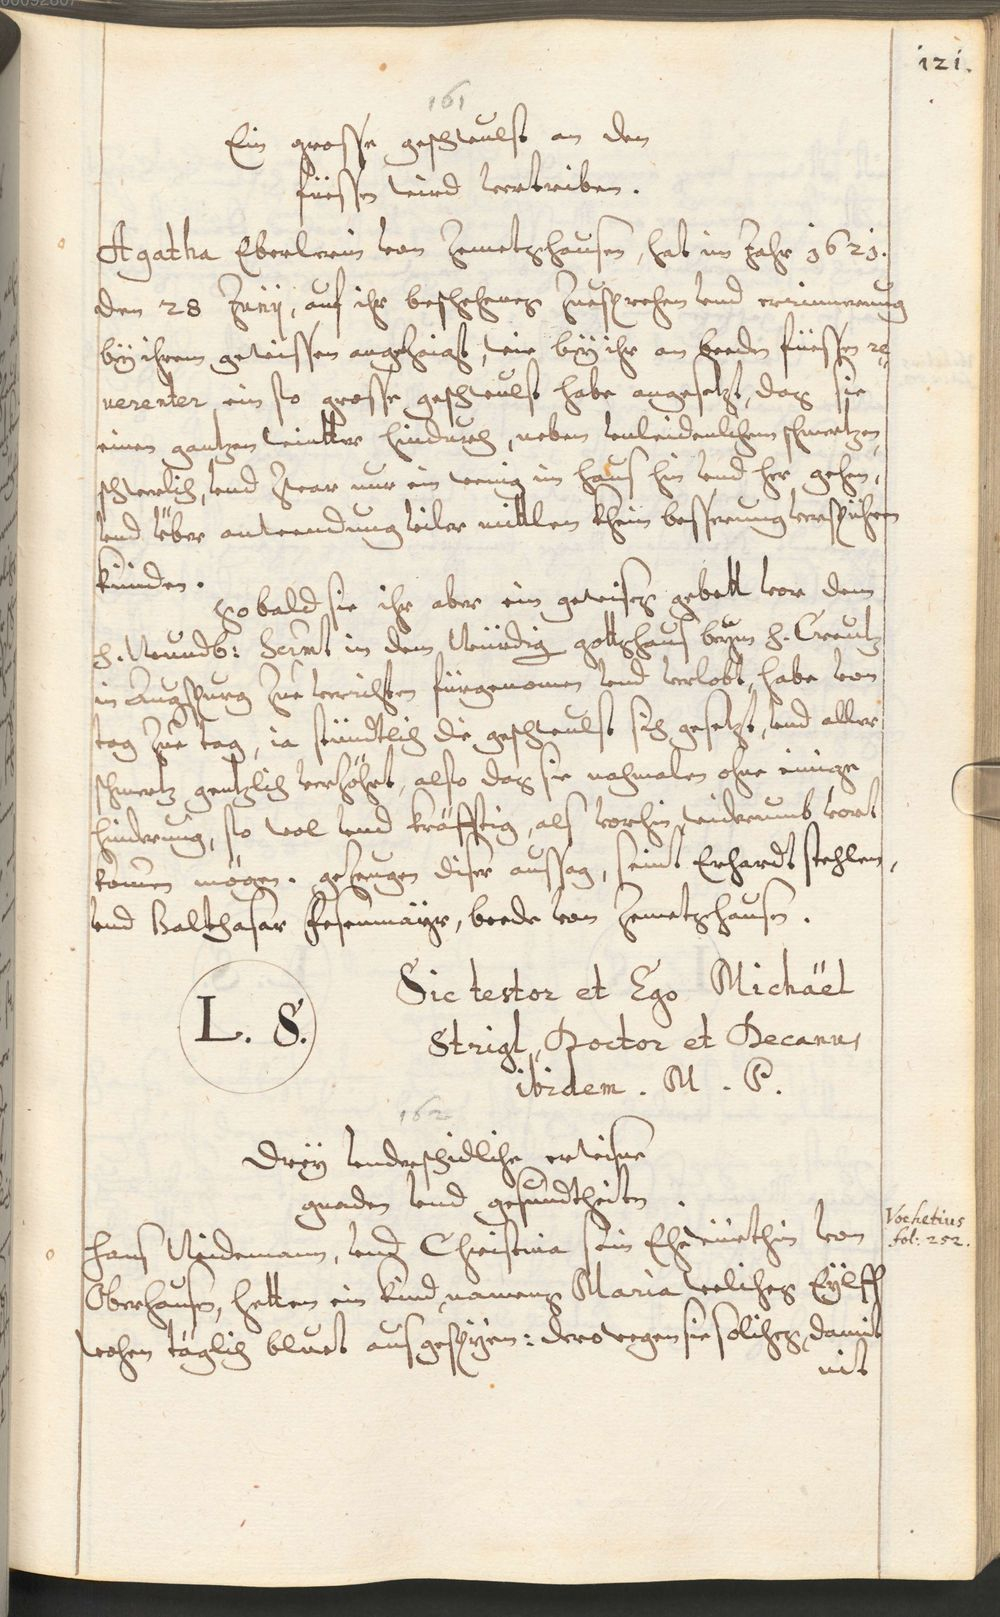 121.
161
Ein grosse geschwulst an den
füessen wird vertriben.
Agatha Eberlerin von Zemetzhausen, hat im Jahr 1621.
den 28 Junij, auf ihr beschehenes Zuesprechen vnd errinnerung
bÿ ihrem gewissen angezaigt, wie bÿ ihr an beeden füessen re=
uerenter ein so grosse geschwulst habe angesetzt, das sie
einen gantzen wintter hindurch, neben vnleidenlichem schmertzen,
schwerlich, vnd zwar nur ein wenig im haus hin vnd her gehen,
vnd über anwendung viler mittlen khein besserung verspühren
künden.
So bald sie ihr aber ein gewises gebett vor dem
H. Wundb: Sacrament in dem Würdig gottshaus beÿm H. Creutz
in Augspurg zue verrichten fürgenomen vnd verlobt, habe von
tag zue tag, ia stündtlich die geschwulst sich gesetzt, vnd aller
schmertz gentzlich verhöhrt, also das sie nachmalen ohne einige
hinderung, so wol vnd kräfftig, als vorhin widerumb vort
komen mögen. gezeugen diser aussag, seint Erhardt stehlen,
vnd Balthasar Fesenmäÿr, beede von Zemetzhausen.
L. S.
Sic testor et Ego Michäel
Strigl, Doctor et Decanus
ibidem. M. P.
162
Dreÿ vnderschidliche erwisne
gnaden vnd gesundtheiten.
Vochetius
fol: 252.
Hans Widemann, vnd Christina sein Ehewürthin von
Oberhausen, hetten ein kind, namens Maria weliches Eÿlff
wochen täglich bluet ausgespÿen: derowegen sie soliches, damit
nit